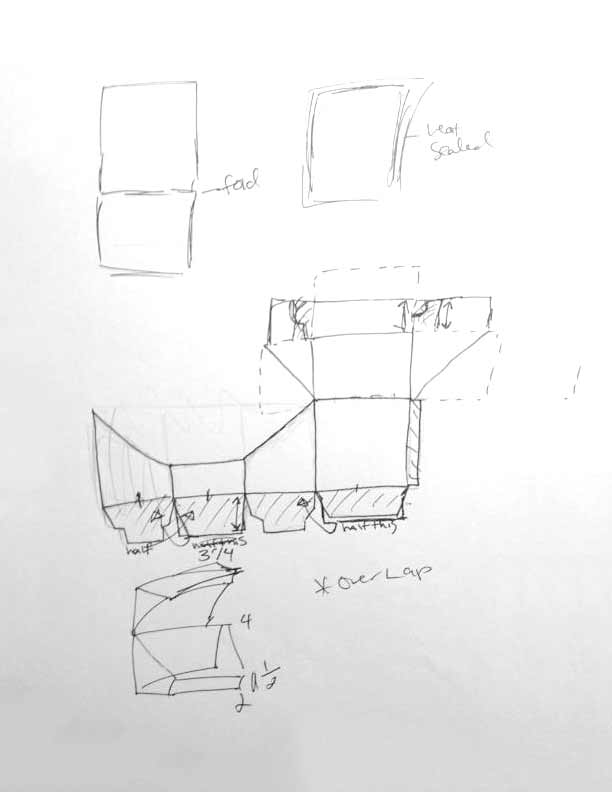 fold
heat
sealed
half
half this
3"/4
half this
* OverLap
4
1/2
2